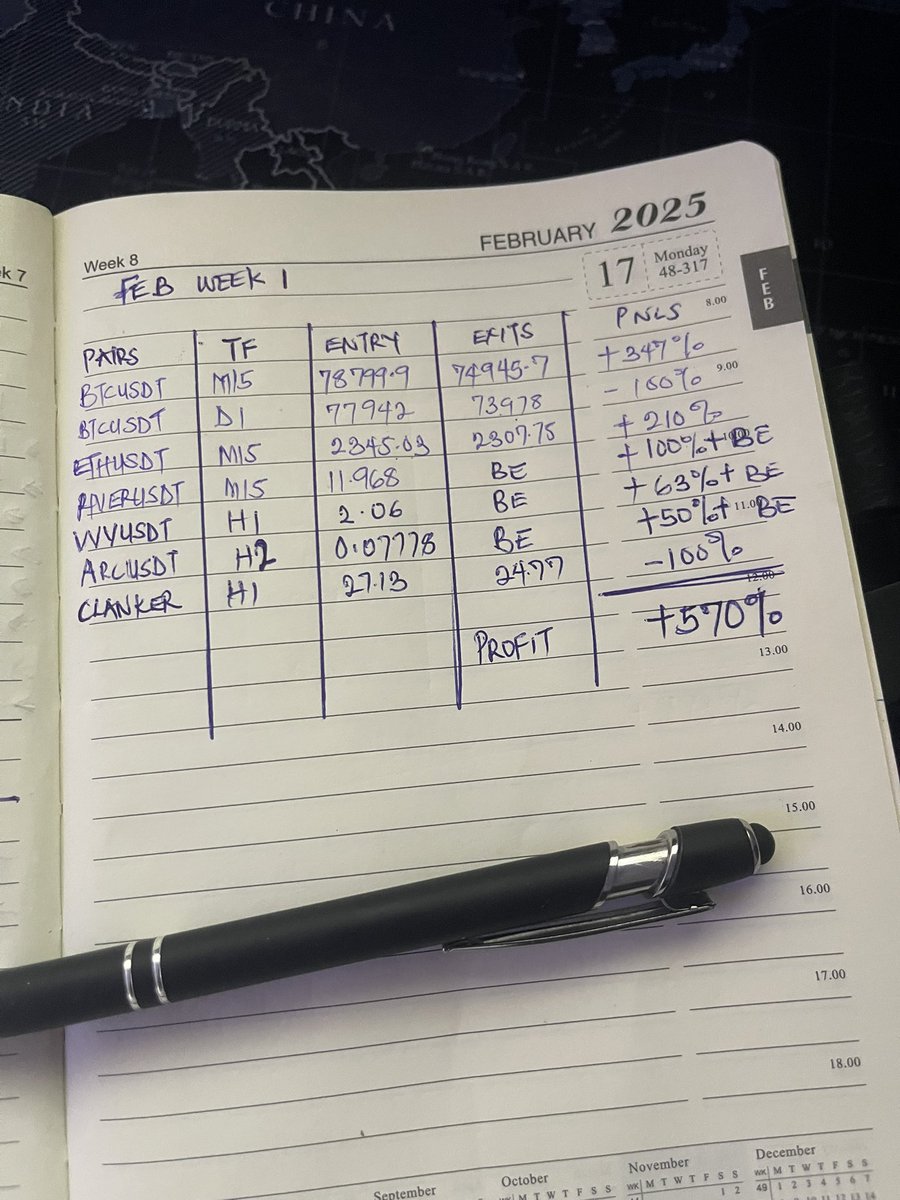 CHINA
k 7
Week 8
FEBRUARY 2025
17 Monday
48-317
FEB
FEB WEEK 1
8.00
PAIRS TF ENTRY EXITS PNLS
BTCUSDT M15 78799.9 74945.7 +347%
9.00
BTCUSDT D1 77942 73978 -100%
ETHUSDT M15 2345.03 2307.75 +210%
RIVERUSDT M15 11.968 BE +100%+BE
VVVUSDT H1 2.06 BE +63%+ BE
11.00
ARCUSDT H2 0.07778 BE +50%+ BE
CLANKER H1 27.13 24.77 -100%
12.00
PROFIT +570%
13.00
14.00
15.00
16.00
17.00
18.00
September October November December
WK M T W T F S S
WK M T W T F S S
WK M T W T F S S
1 2
49 1 2 3 4 5 6 7